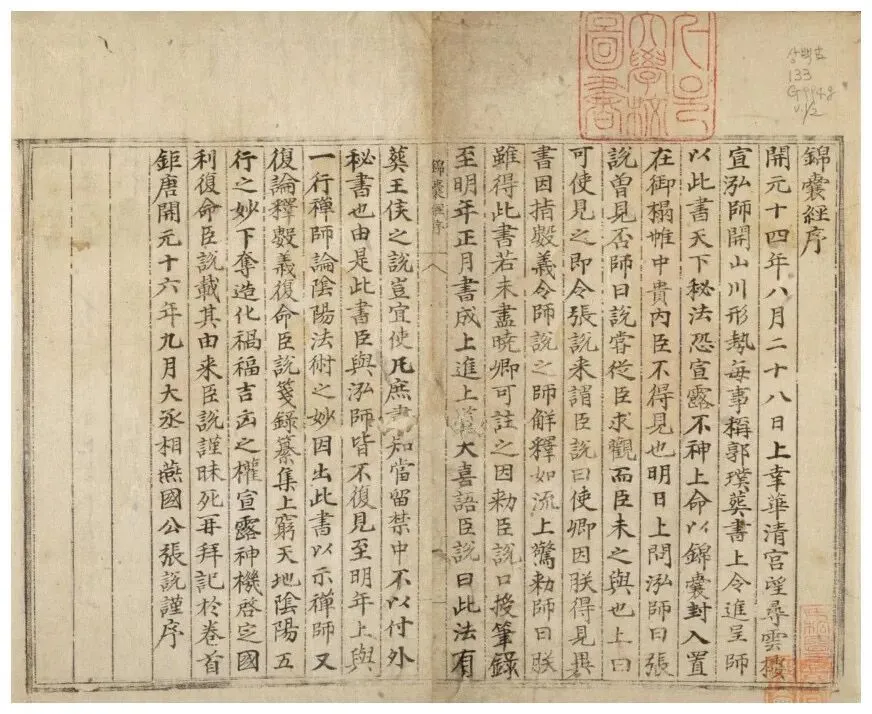 상백古
133
G994g
v.1/2
錦囊經序
開元十四年八月二十八日上幸華清宮望尋雲樓
宣泓師開山川形勢每事稱郭璞葬書上令進呈師
以此書天下秘法恐宣露不神上命以錦囊封入置
在御榻帷中貴內臣不得見也明日上問泓師曰張
說曾見否師曰說嘗從臣求觀而臣未之與也上曰
可使見之即令張說来謂臣說曰使卿因朕得見異
書因指數義令師說之師解釋如流上驚勑師曰朕
雖得此書若未盡曉卿可註之因勑臣說口授筆錄
至明年正月書成上進上覽大喜語臣說曰此法有
錦囊經序
葬王侯之說豈宜使凡庶盡知當留禁中不以付外
秘書也由是此書臣與泓師皆不復見至明年上與
一行禪師論陰陽法術之妙因出此書以示禪師又
復論釋數義復命臣說箋錄纂集上窮天地陰陽五
行之妙下奪造化禍福吉凶之權宣露神機啓定國
利復命臣說載其由来臣說謹昧死再拜記於卷首
鉅唐開元十六年九月大丞相燕國公張說謹序